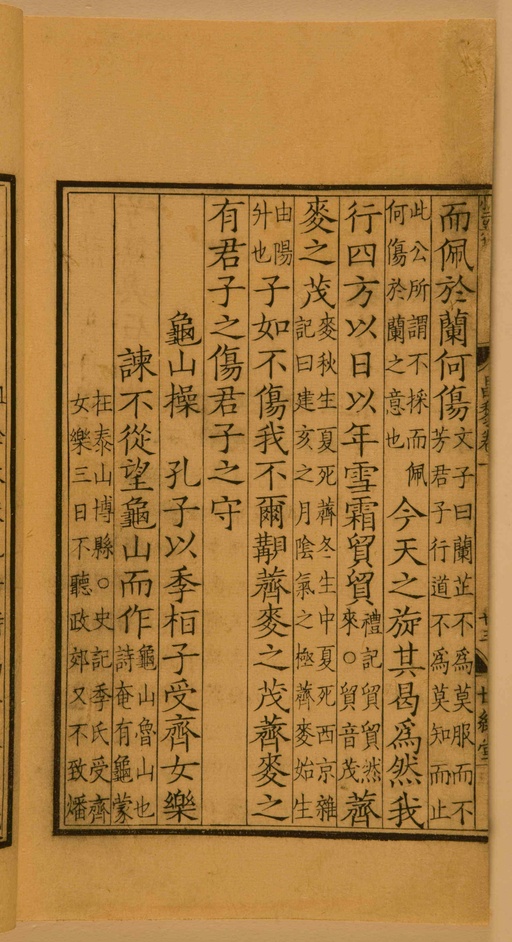 而佩於蘭何傷文子曰蘭芷不為莫服而不芳君子行道不為莫知而止
此公所謂不採而佩何傷於蘭之意也今天之旋其曷爲然我
行四方以日以年雪霜貿貿禮記貿貿然來○貿音茂薺
麥之茂麥秋生夏死薺冬生中夏死西京雜記曰建亥之月陰氣之極薺麥始生
由陽升也子如不傷我不爾覯薺麥之茂薺麥之
有君子之傷君子之守
龜山操 孔子以季桓子受齊女樂
諫不從望龜山而作龜山魯山也詩奄有龜蒙
在泰山博縣○史記季氏受齊女樂三日不聽政郊又不致燔